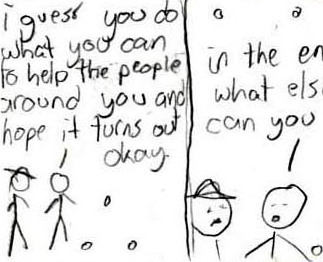 i guess you do
what you can
to help the people
around you and
hope it turns out
okay.
in the en
what els
can you